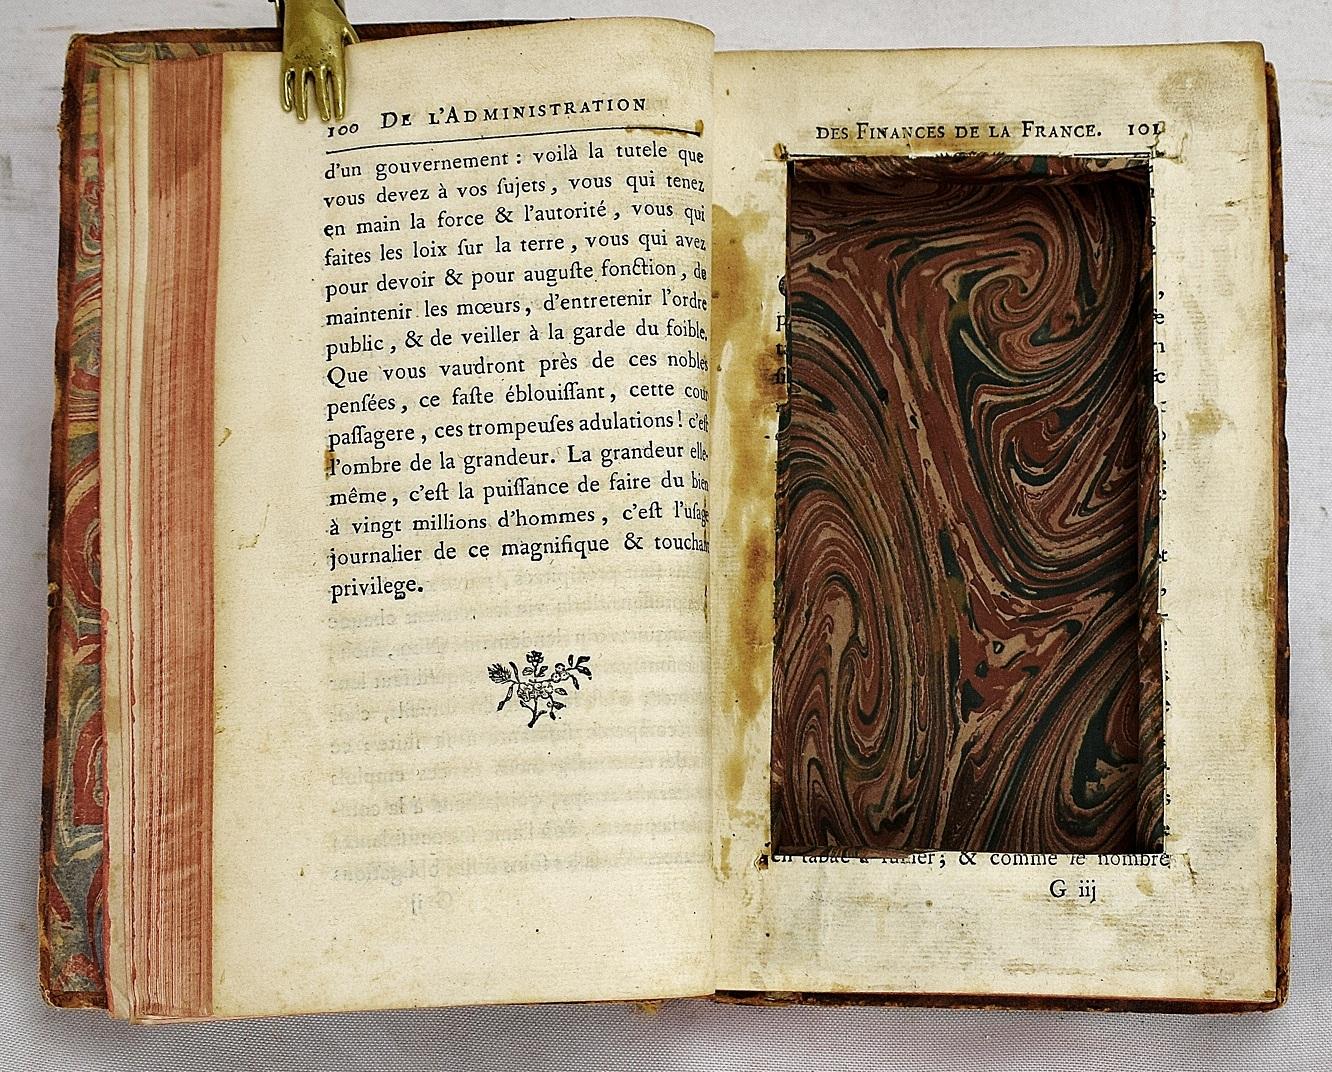 100 DE L'ADMINISTRATION
d'un gouvernement : voilà la tutele que
vous devez à vos ſujets, vous qui tenez
en main la force & l'autorité, vous qui
faites les loix ſur la terre, vous qui avez
pour devoir & pour auguſte fonction, de
maintenir les mœurs, d'entretenir l'ordre
public, & de veiller à la garde du foible.
Que vous vaudront près de ces nobles
penſées, ce faſte éblouiſſant, cette cour
paſſagere, ces trompeuſes adulations ! c'eſt
l'ombre de la grandeur. La grandeur elle-
même, c'eſt la puiſſance de faire du bien
à vingt millions d'hommes, c'eſt l'uſage
journalier de ce magnifique & touchant
privilege.
DES FINANCES DE LA FRANCE. 101
en tabac à fumer; & comme le nombre
G iij